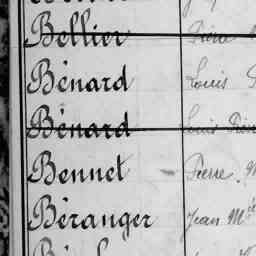 Bellier Pierre
Bénard Louis
Bénard Louis Pierre
Bennet Pierre
Béranger Jean Mie